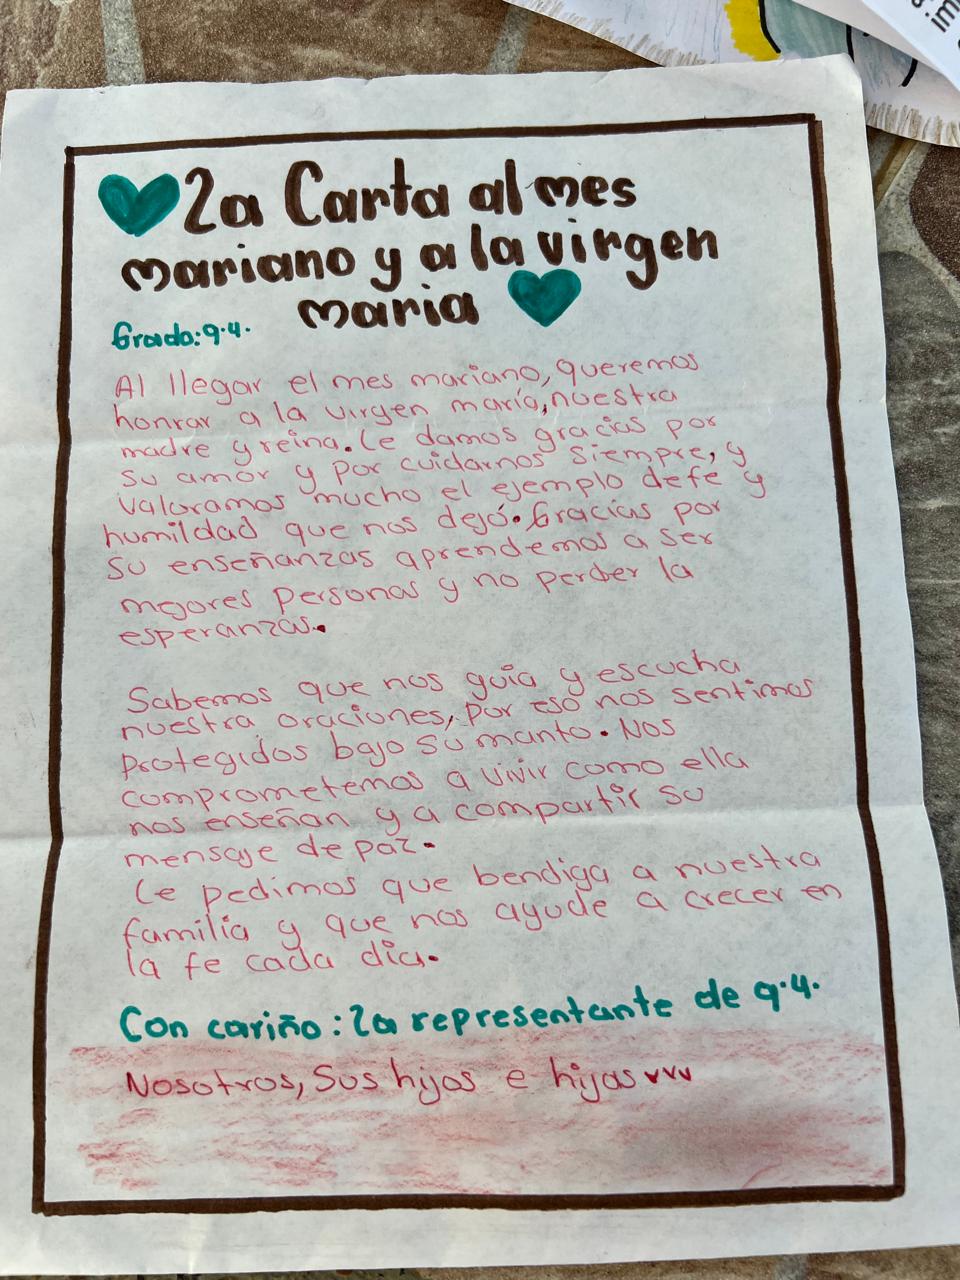 La Carta al mes
mariano y a la virgen
maria
Grado: 9.4.
Al llegar el mes mariano, queremos
honrar a la virgen maría, nuestra
madre y reina. Le damos gracias por
su amor y por cuidarnos siempre, y
valoramos mucho el ejemplo de fe y
humildad que nos dejó. Gracias por
su enseñanzas aprendemos a ser
mejores personas y no perder la
esperanzas.
Sabemos que nos guía y escucha
nuestra oraciones, por eso nos sentimos
protegidos bajo su manto. Nos
comprometemos a vivir como ella
nos enseñan y a compartir su
mensaje de paz.
Le pedimos que bendiga a nuestra
familia y que nos ayude a crecer en
la fe cada dia.
Con cariño: La representante de 9.4.
Nosotros, Sus hijos e hijas vvv